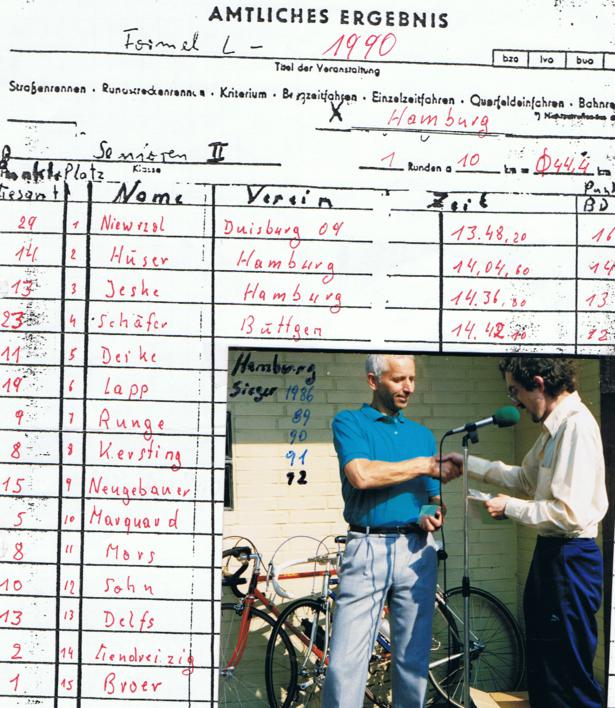 AMTLICHES ERGEBNIS
Formel L - 1990
bzo lvo buo
Titel der Veranstaltung
Straßenrennen · Rundstreckenrennen · Kriterium · Bergzeitfahren · Einzelzeitfahren · Querfeldeinfahren · Bahnre
X Hamburg
Senioren II
Klasse
1 Runden a 10 km = Ø 44,4 km
Gesamt Platz Name Verein Zeit BD
29 1 Niewrzol Duisburg 09 13.48,20 16
14 2 Hüser Hamburg 14,04,60 14
13 3 Jeske Hamburg 14.36,80 13
23 4 Schäfer Büttgen 14.42 12
11 5 Deike
19 6 Lapp
9 7 Runge
8 8 Kersting
15 9 Neugebauer
5 10 Marquard
8 11 Mors
10 12 Sohn
13 13 Delfs
2 14
1. 15 Broer
Hamburg
Sieger 1986
89
90
91
92